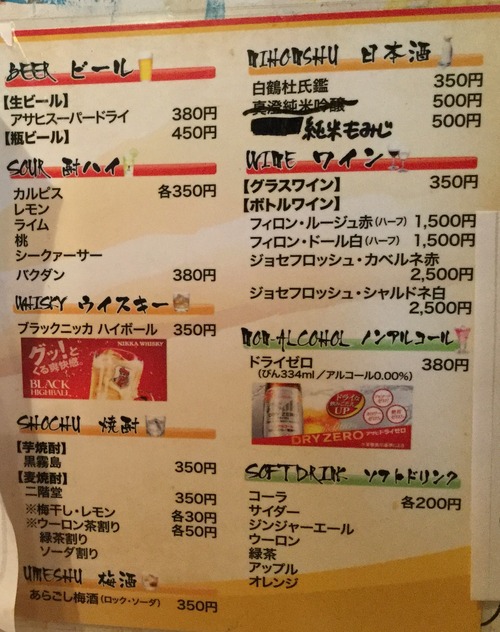 BEER ビール
【生ビール】
アサヒスーパードライ 380円
【瓶ビール】 450円
SOUR 酎ハイ
カルピス 各350円
レモン
ライム
桃
シークァーサー
バクダン 380円
WHISKY ウイスキー
ブラックニッカ ハイボール 350円
NIKKA WHISKY
グッ!と
くる爽快感。
BLACK
HIGHBALL
SHOCHU 焼酎
【芋焼酎】
黒霧島 350円
【麦焼酎】
二階堂 350円
※梅干し・レモン 各30円
※ウーロン茶割り 各50円
緑茶割り
ソーダ割り
UMESHU 梅酒
あらごし梅酒(ロック・ソーダ) 350円
NIHONSHU 日本酒
白鶴杜氏鑑 350円
真澄純米吟醸 500円
純米もみじ 500円
WINE ワイン
【グラスワイン】 350円
【ボトルワイン】
フィロン・ルージュ赤(ハーフ) 1,500円
フィロン・ドール白(ハーフ) 1,500円
ジョセフロッシュ・カベルネ赤
2,500円
ジョセフロッシュ・シャルドネ白
2,500円
NON-ALCOHOL ノンアルコール
ドライゼロ 380円
(びん334ml/アルコール0.00%)
UP
DRY ZERO アサヒドライゼロ
SOFTDRINK ソフトドリンク
コーラ 各200円
サイダー
ジンジャーエール
ウーロン
緑茶
アップル
オレンジ